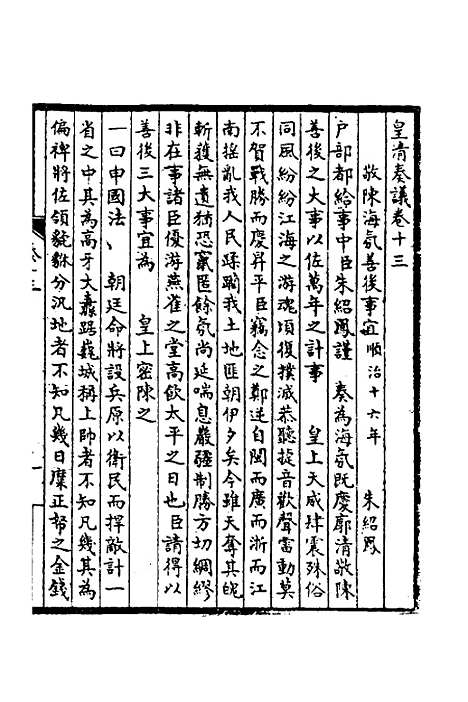 皇清奏議卷十三
敬陳海氛善後事宜 順治十六年 朱紹鳳
戶部都給事中臣朱紹鳳謹 奏為海氛既慶廓清敬陳
善後之大事以佐萬年之計事 皇上天威肆震殊俗
同風紛紛江海之游魂頃復撲滅恭聽捷音歡聲雷動莫
不賀戰勝而慶昇平臣竊念之鄭逆自閩而廣而浙而江
南搖亂我人民蹂躪我土地匪朝伊夕矣今雖天奪其魄
斬獲無遺猶恐竄匿餘氛尚延喘息嚴疆制勝方切綢繆
非在事諸臣優游燕雀之堂高飲太平之日也臣請得以
善後三大事宜為 皇上密陳之
一曰申國法 朝廷命將設兵原以衛民而捍敵計一
省之中其為高牙大纛踞巍城稱上帥者不知凡幾其為
偏裨將佐領貔貅分汛地者不知凡幾日糜正帑之金錢